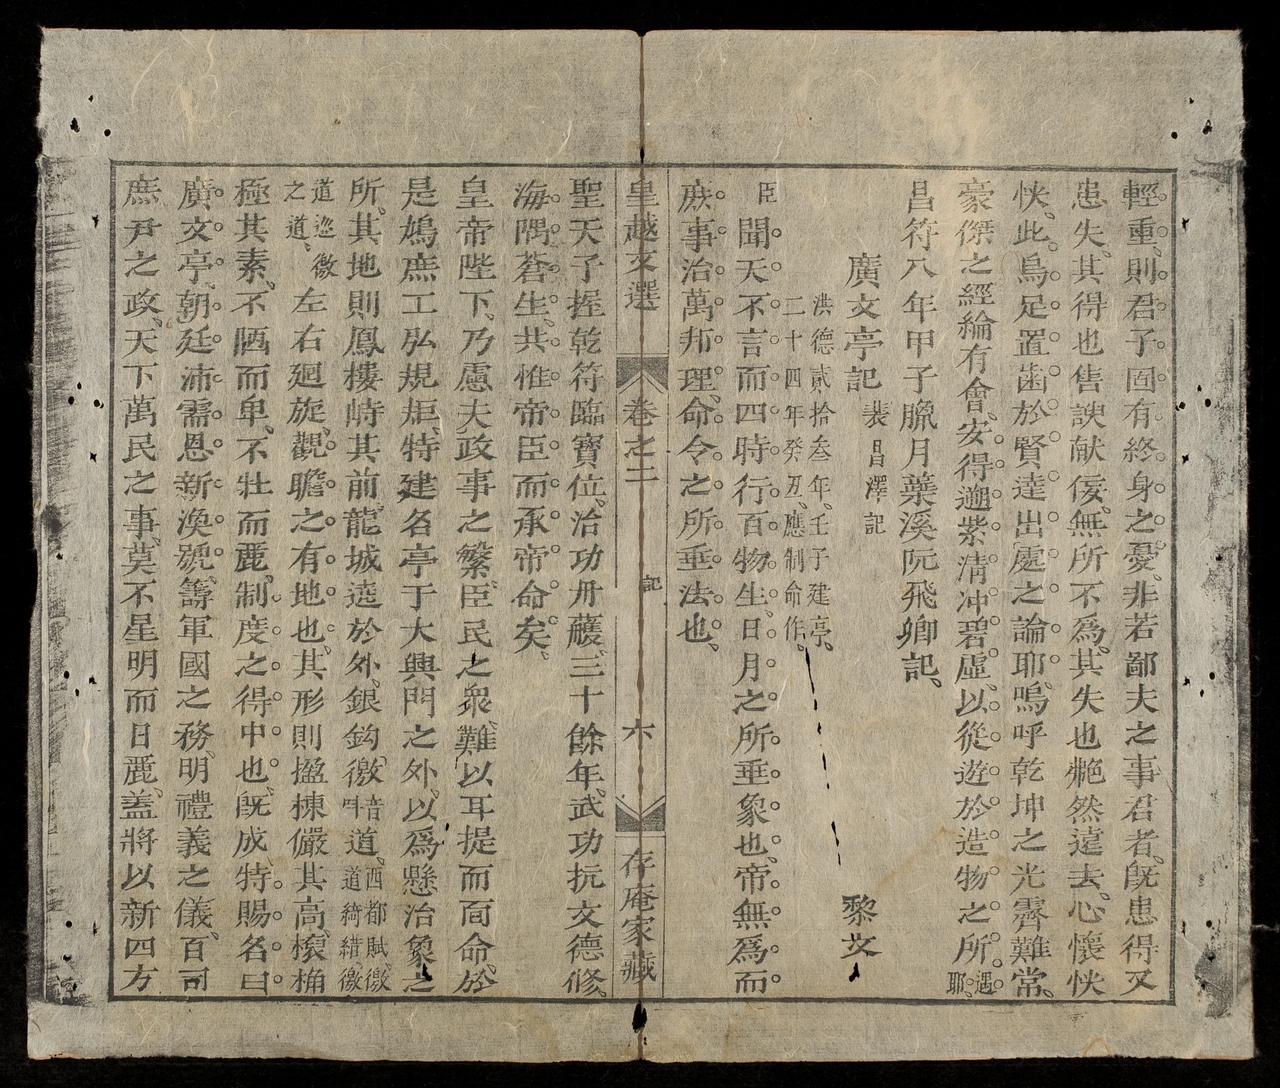 輕重、則君子固有終身之憂、非若鄙夫之事君者、既患得又
患失、其得也售諛献佞、無所不爲、其失也艴然遠去、心懷怏
怏、此烏足置齒於賢達出處之論耶、嗚呼乾坤之光霽難常、
豪傑之經綸有會、安得遡紫清冲碧虛、以從遊於造物之所遇耶、
昌符八年甲子臘月蘂溪阮飛卿記、
廣文亭記 裴昌澤記 黎文
洪德貳拾叁年、壬子建亭、
二十四年癸丑、應制命作、
臣聞天不言而四時行百物生、日月之所垂象也、帝無爲而
庶事治萬邦理、命令之所垂法也、
皇越文選 卷之二 記 六 存庵家藏
聖天子握乾符臨寶位、治功冊䕶、三十餘年、武功抗文德修、
海隅蒼生、共惟帝臣而承帝命矣、
皇帝陛下、乃慮夫政事之繁、臣民之衆、難以耳提而面命、於
是鳩庶工弘規矩、特建名亭于大興門之外、以爲懸治象之
所、其地則鳳樓峙其前、龍城遶於外、銀鈎徼音叫道、西都賦、徼道綺錯、徼
道廵徼之道、左右廻旋、觀瞻之有地也、其形則楹棟儼其高、榱桷
極其素、不陋而卑、不壯而麗、制度之得中也、旣成、特賜名曰
廣文亭、朝廷沛需恩新渙號、籌軍國之務、明禮義之儀、百司
庶尹之政、天下萬民之事、莫不星明而日麗、蓋將以新四方